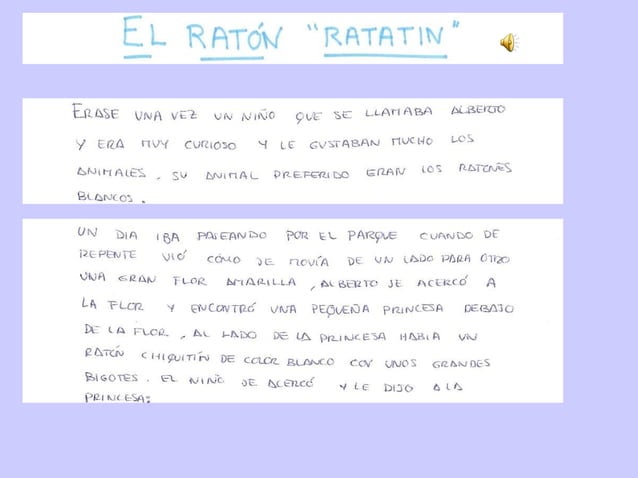 EL RATÓN "RATATIN"
ERASE UNA VEZ UN NIÑO QUE SE LLAMABA ALBERTO
Y ERA MUY CURIOSO Y LE GUSTABAN MUCHO LOS
ANIMALES, SU ANIMAL PREFERIDO ERAN LOS RATONES
BLANCOS.
UN DIA IBA PASEANDO POR EL PARQUE CUANDO DE
REPENTE VIÓ CÓMO SE MOVÍA DE UN LADO PARA OTRO
UNA GRAN FLOR AMARILLA, ALBERTO SE ACERCÓ A
LA FLOR Y ENCONTRÓ UNA PEQUEÑA PRINCESA DEBAJO
DE LA FLOR, AL LADO DE LA PRINCESA HABIA UN
RATÓN CHIQUITÍN DE COLOR BLANCO CON UNOS GRANDES
BIGOTES. EL NIÑO SE ACERCÓ Y LE DIJO A LA
PRINCESA: